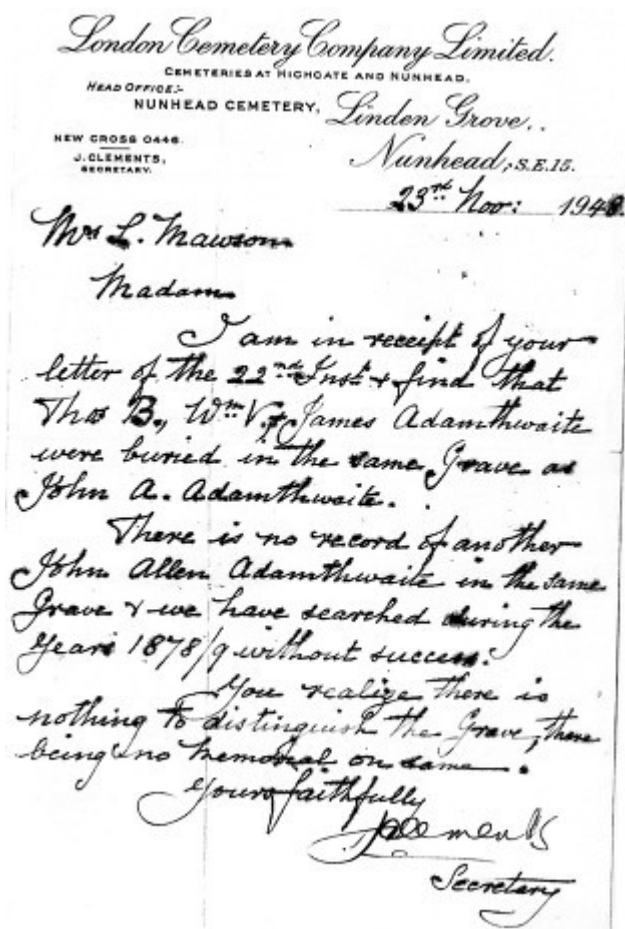 London Cemetery Company Limited.
CEMETERIES AT HIGHGATE AND NUNHEAD.
HEAD OFFICE:-
NUNHEAD CEMETERY,
Linden Grove,
NEW CROSS 0446.
Nunhead, S.E.15.
J. CLEMENTS,
SECRETARY.
23rd Nov: 194
Mrs L. Mawson
Madam
I am in receipt of your
letter of the 22nd Inst & find that
Thos B., Wm V. & James Adamthwaite
were buried in the same Grave as
John A. Adamthwaite.
There is no record of another
John Allen Adamthwaite in the same
Grave & we have searched during the
Years 1878/9 without success.
You realize there is
nothing to distinguish the Grave, there
being no Memorial on same.
Yours faithfully
J Clements
Secretary